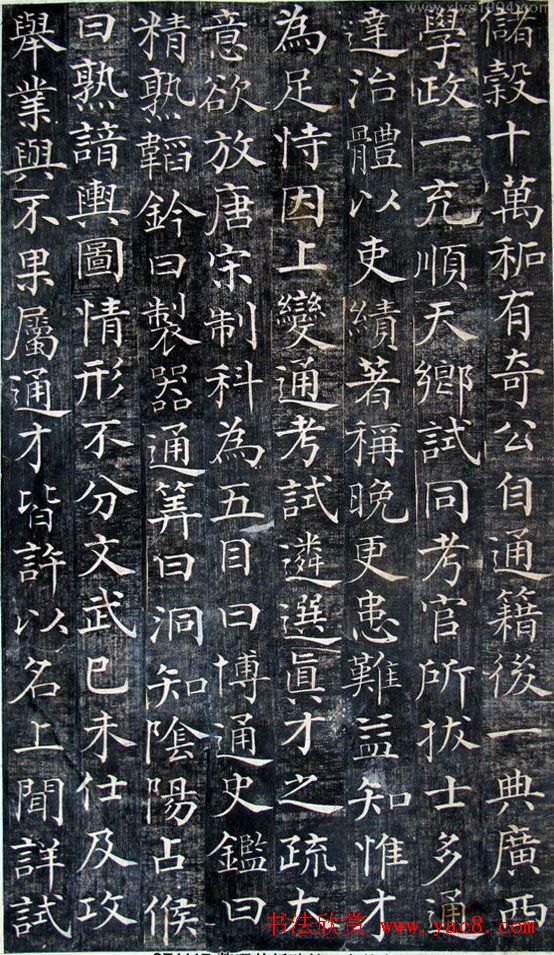 儲穀十萬䄷有奇公自通籍後一典廣西
學政一充順天鄉試同考官所拔士多通
達治體以吏績著稱晚更患難益知惟才
為足恃因上變通考試遴選眞才之疏大
意欲放唐宋制科為五目曰博通史鑑曰
精熟韜鈐曰製器通筭曰洞知陰陽占候
曰熟諳輿圖情形不分文武已未仕及攻
舉業與不果屬通才皆許以名上聞詳試
书法欣赏 www.yac8.com